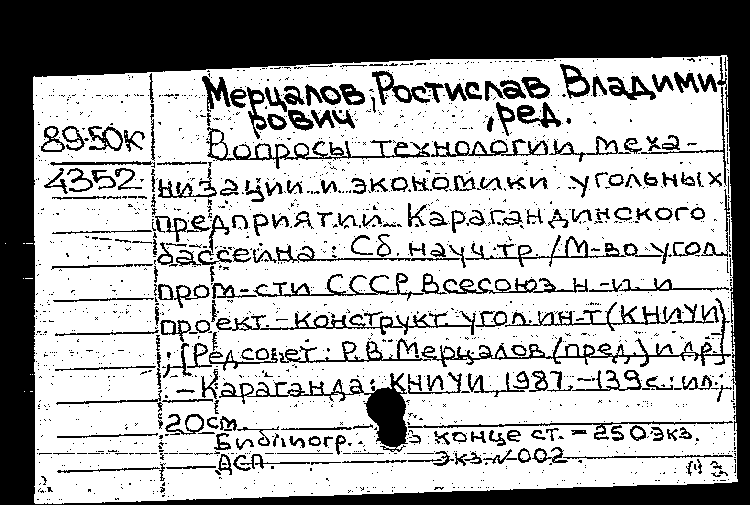 Мерцалов, Ростислав Владими-
рович, ред.
89-50К
4352
Вопросы технологии, меха-
низации и экономики угольных
предприятий Карагандинского
бассейна : Сб. науч. тр. / М-во угол.
пром-сти СССР, Всесоюз. н.-и. и
проект.-конструкт. угол. ин-т (КНИУИ)
; [Редсовет : Р.В. Мерцалов (пред.) и др.]
. - Караганда : КНИУИ, 1987. - 139 с. : ил.;
20 см.
Библиогр. в конце ст. - 250 экз.
ДСП. Экз. N 002